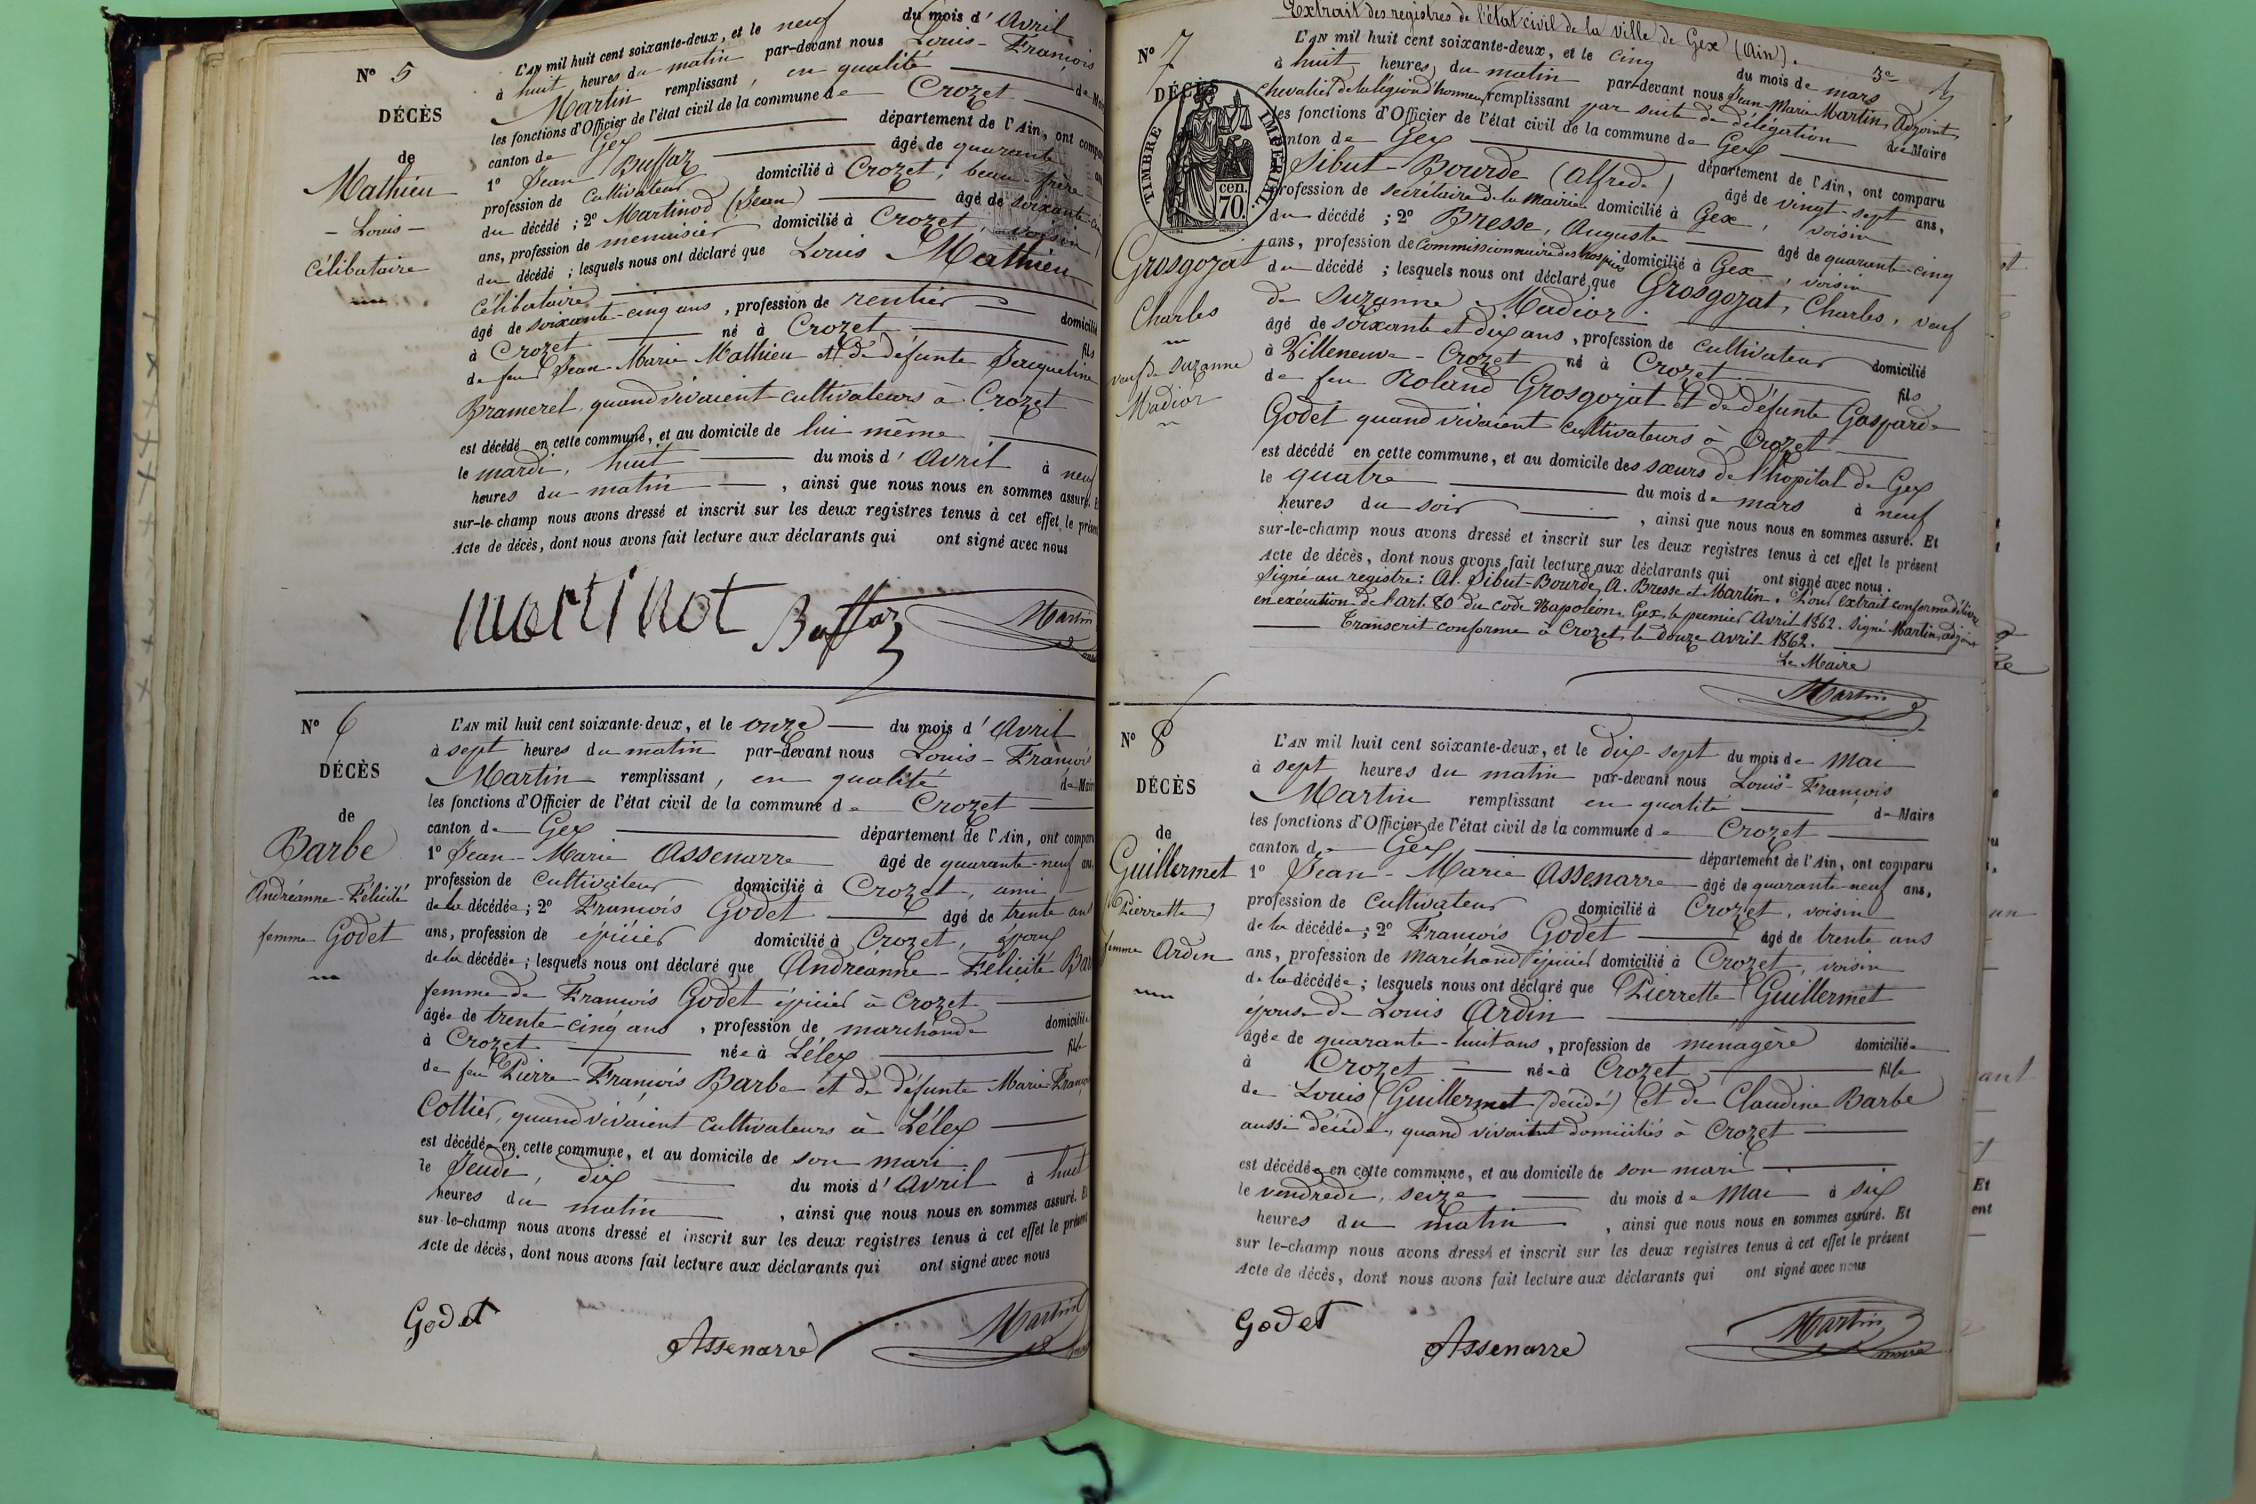 N° 5
DÉCÈS
de
Mathieu
- Louis -
célibataire
L'AN mil huit cent soixante-deux, et le neuf du mois d'Avril
à huit heures du matin par-devant nous Louis-François
Martin remplissant, en qualité de Maire
les fonctions d'Officier de l'état civil de la commune de Crozet
canton de Gex département de l'Ain, ont comparu
1° Jean Buffaz âgé de quarante
profession de cultivateur domicilié à Crozet, beau-frère
du décédé ; 2° Martinod (Jean) âgé de soixante-
ans, profession de menuisier domicilié à Crozet, voisin
du décédé ; lesquels nous ont déclaré que Louis Mathieu
célibataire
âgé de soixante-cinq ans, profession de rentier domicilié
à Crozet né à Crozet fils
de feu Jean-Marie Mathieu et de défunte Jacqueline
Brameret, quand vivaient cultivateurs à Crozet
est décédé en cette commune, et au domicile de lui même
le mardi, huit du mois d'Avril à neuf
heures du matin, ainsi que nous nous en sommes assuré. Et
sur-le-champ nous avons dressé et inscrit sur les deux registres tenus à cet effet le présent
Acte de décès, dont nous avons fait lecture aux déclarants qui ont signé avec nous
martinot Buffaz Martin
N° 6
DÉCÈS
de
Barbe
Andréanne-Félicité
femme Godet
L'AN mil huit cent soixante-deux, et le onze du mois d'Avril
à sept heures du matin par-devant nous Louis-François
Martin remplissant, en qualité de Maire
les fonctions d'Officier de l'état civil de la commune de Crozet
canton de Gex département de l'Ain, ont comparu
1° Jean-Marie Assenarre âgé de quarante-neuf ans,
profession de cultivateur domicilié à Crozet, ami
de la décédée ; 2° François Godet âgé de trente ans
ans, profession de épicier domicilié à Crozet, époux
de la décédée ; lesquels nous ont déclaré que Andréanne-Félicité Bar
femme de François Godet épicier à Crozet
âgée de trente-cinq ans, profession de marchande domiciliée
à Crozet née à Lélex fille
de feu Pierre François Barbe et de défunte Marie Franç
Cottier, quand vivaient cultivateurs à Lélex
est décédée en cette commune, et au domicile de son mari.
le Jeudi, dix du mois d'Avril à huit
heures du matin, ainsi que nous nous en sommes assuré. Et
sur-le-champ nous avons dressé et inscrit sur les deux registres tenus à cet effet le présent
Acte de décès, dont nous avons fait lecture aux déclarants qui ont signé avec nous
Godet Assenarre Martin
Extrait des registres de l'état civil de la ville de Gex (Ain).
N° 7
DÉCÈS
TIMBRE IMPERIAL
70 cen.
Grosgozat
Charles
veuf de Suzanne
Madior
L'AN mil huit cent soixante-deux, et le cinq du mois de mars
à huit heures du matin par-devant nous Jean-Marie Martin, Adjoint,
chevalier de la légion d'honneur, remplissant par suite de délégation du Maire
les fonctions d'Officier de l'état civil de la commune de Gex
canton de Gex département de l'Ain, ont comparu
Sibut-Bourde (Alfred) âgé de vingt-sept ans,
profession de secrétaire de la mairie domicilié à Gex, voisin
du décédé ; 2° Bresse, Auguste âgé de quarante-cinq
ans, profession de commissionnaire des hospices domicilié à Gex, voisin
du décédé ; lesquels nous ont déclaré que Grosgozat, Charles, veuf
de Suzanne Madior.
âgé de soixante et dix ans, profession de cultivateur domicilié
à Villeneuve-Crozet né à Crozet fils
de feu Roland Grosgozat et de défunte Gasparde
Godet quand vivaient cultivateurs à Crozet
est décédé en cette commune, et au domicile des sœurs de l'hopital de Gex
le quatre du mois de mars à neuf
heures du soir, ainsi que nous nous en sommes assuré. Et
sur-le-champ nous avons dressé et inscrit sur les deux registres tenus à cet effet le présent
Acte de décès, dont nous avons fait lecture aux déclarants qui ont signé avec nous.
Signé au registre : Al. Sibut-Bourde, A. Bresse et Martin. Pour extrait conforme délivré
en exécution de l'art. 80 du code Napoléon. Gex, le premier Avril 1862. Signé Martin, adjoint
Transcrit conforme à Crozet, le douze Avril 1862.
Le Maire
Martin
N° 8
DÉCÈS
de
Guillermet
(Pierrette)
femme Ardin
L'AN mil huit cent soixante-deux, et le dix-sept du mois de Mai
à sept heures du matin par-devant nous Louis-François
Martin remplissant en qualité de Maire
les fonctions d'Officier de l'état civil de la commune de Crozet
canton de Gex département de l'Ain, ont comparu
1° Jean-Marie Assenarre âgé de quarante-neuf ans,
profession de cultivateur domicilié à Crozet, voisin
de la décédée ; 2° François Godet âgé de trente ans
ans, profession de marchand épicier domicilié à Crozet, voisin
de la décédée ; lesquels nous ont déclaré que Pierrette Guillermet
épouse de Louis Ardin
âgée de quarante-huit ans, profession de ménagère domiciliée
à Crozet née à Crozet fille
de Louis Guillermet (décédé) et de Claudine Barbe
aussi décédée, quand vivaient domiciliés à Crozet
est décédée en cette commune, et au domicile de son mari
le vendredi, seize du mois de Mai à six
heures du matin, ainsi que nous nous en sommes assuré. Et
sur le-champ nous avons dressé et inscrit sur les deux registres tenus à cet effet le présent
Acte de décès, dont nous avons fait lecture aux déclarants qui ont signé avec nous
Godet Assenarre Martin maire